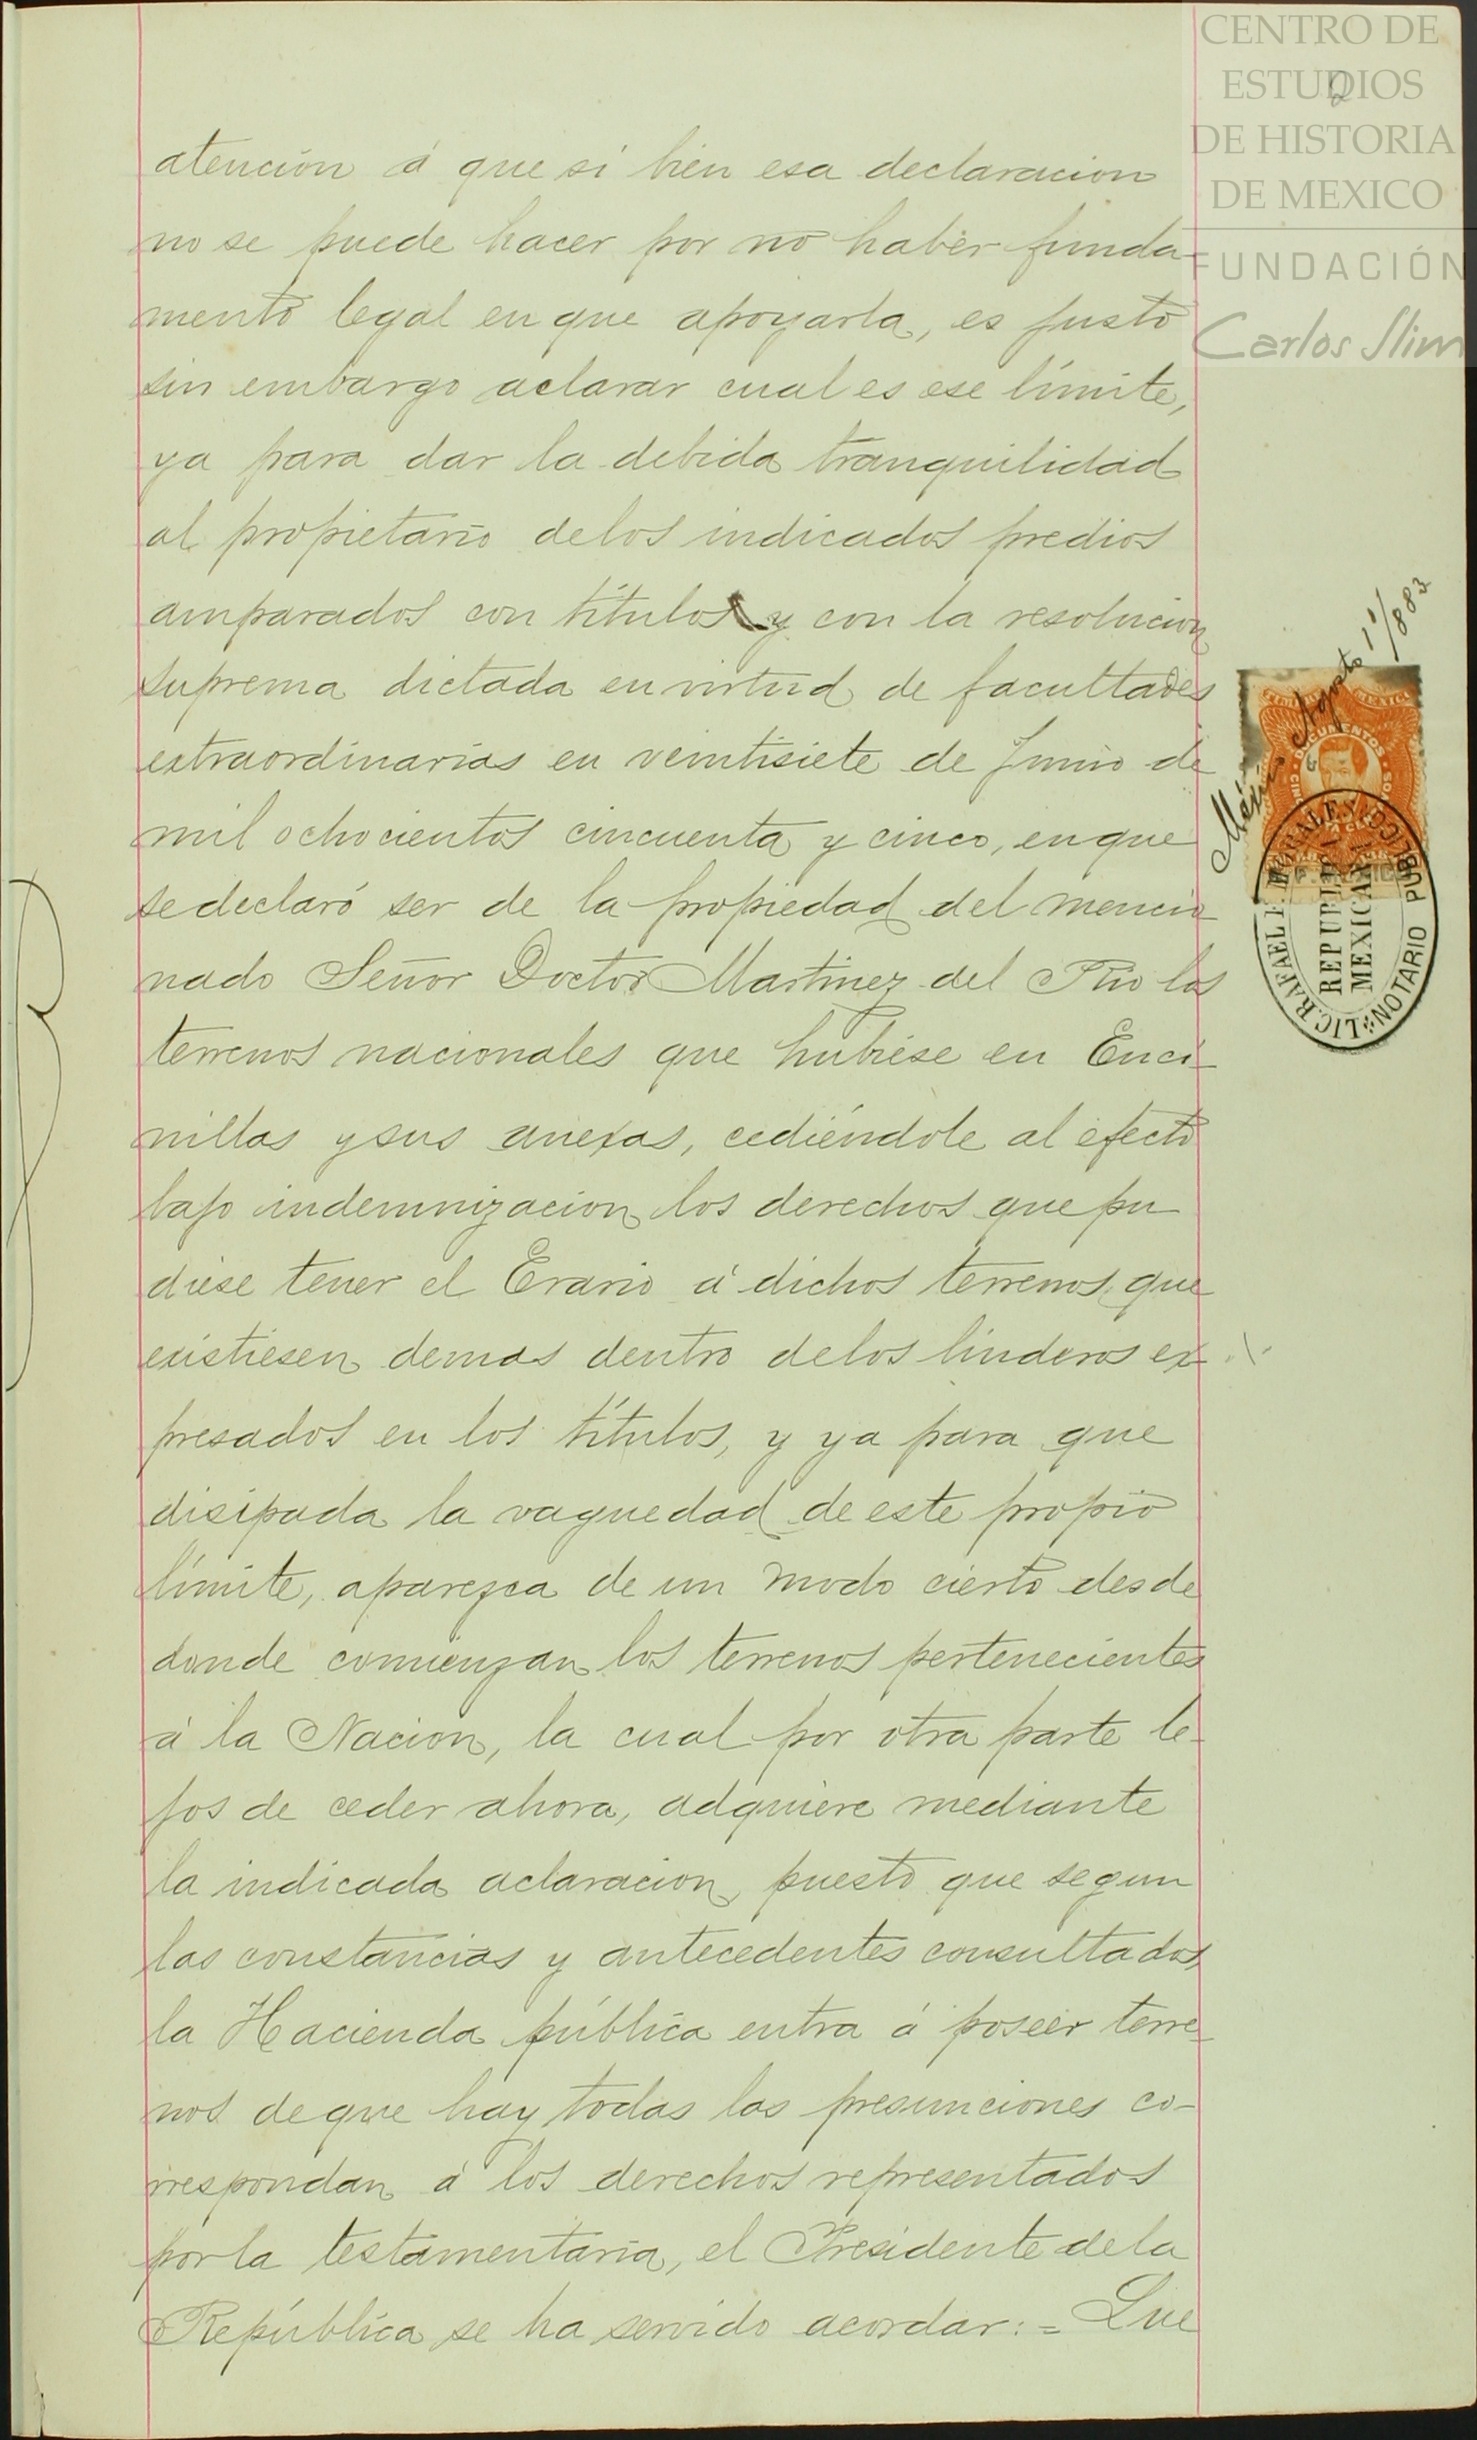 CENTRO DE
ESTUDIOS
DE HISTORIA
DE MEXICO
FUNDACIÓN
Carlos Slim
2
atencion á que si bien esa declaracion
no se puede hacer por no haber funda-
mento legal en que apoyarla, es justo
sin embargo aclarar cual es ese límite,
ya para dar la debida tranquilidad
al propietario de los indicados predios
amparados con títulos y con la resolucion
suprema dictada en virtud de facultades
extraordinarias en veintisiete de Junio de
mil ochocientos cincuenta y cinco, en que
se declaró ser de la propiedad del mencio
nado Señor Doctor Martinez del Rio los
terrenos nacionales que hubiese en Enci-
nillas y sus anexas, cediéndole al efecto
bajo indemnizacion los derechos que pu
diese tener el Erario á dichos terrenos que
existiesen demas dentro de los linderos ex
presados en los títulos, y ya para que
disipada la vaguedad de este propio
límite, aparezca de un modo cierto desde
donde comienzan los terrenos pertenecientes
á la Nacion, la cual por otra parte le-
jos de ceder ahora, adquiere mediante
la indicada aclaracion, puesto que segun
las constancias y antecedentes consultados,
la Hacienda pública entra á poseer terre-
nos de que hay todas las presunciones co-
rrespondan á los derechos representados
por la testamentaría, el Presidente de la
República se ha servido acordar: = Que
México Agosto 1º/883
DOCUMENTOS
LIC. RAFAEL F. MORALES
NOTARIO PUBLICO
REPUBLICA
MEXICANA